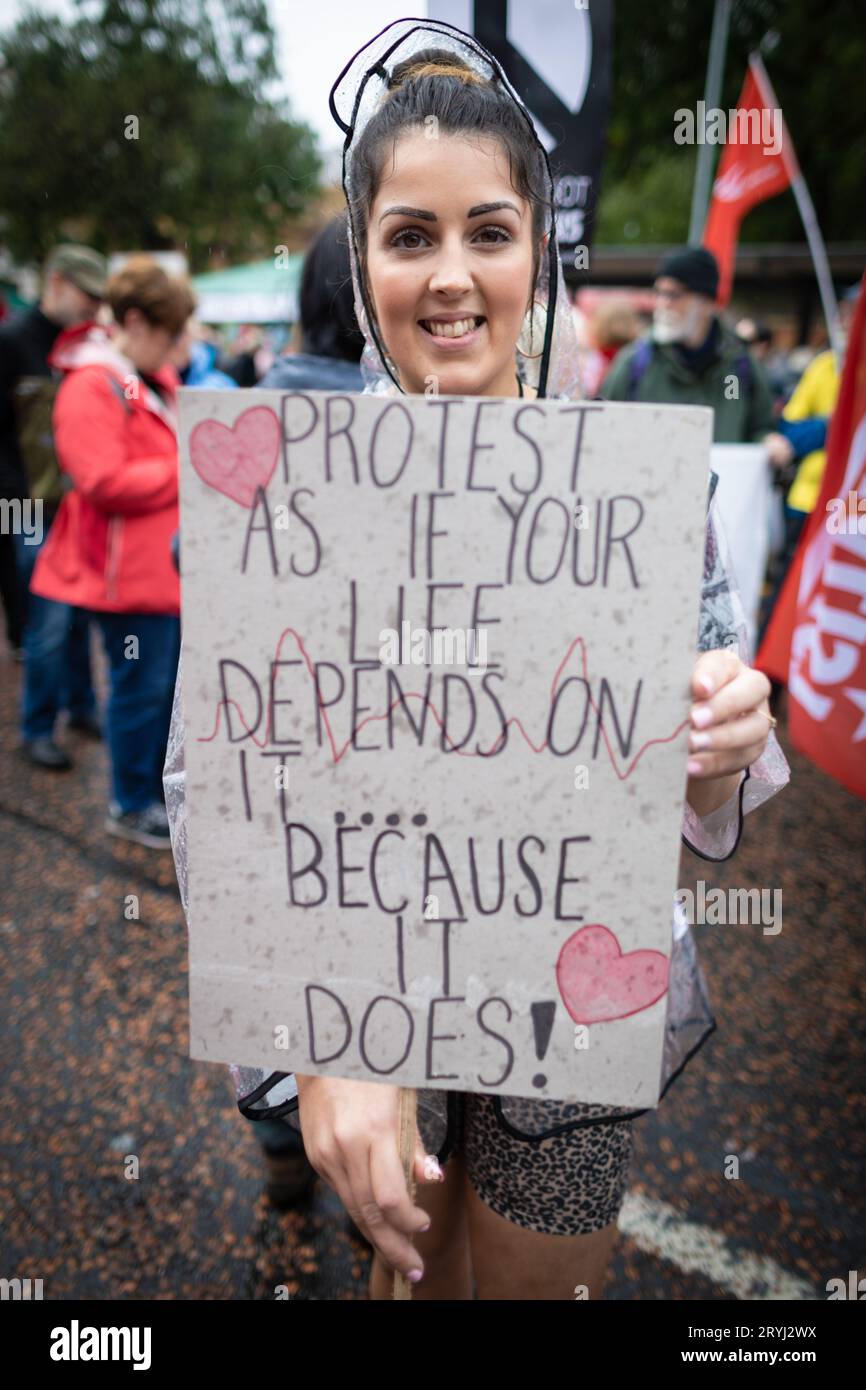 PROTEST
AS IF YOUR
LIFE
DEPENDS ON
IT ....
BECAUSE
IT
DOES!
alamy
Image ID: 2RYJ2WX
www.alamy.com